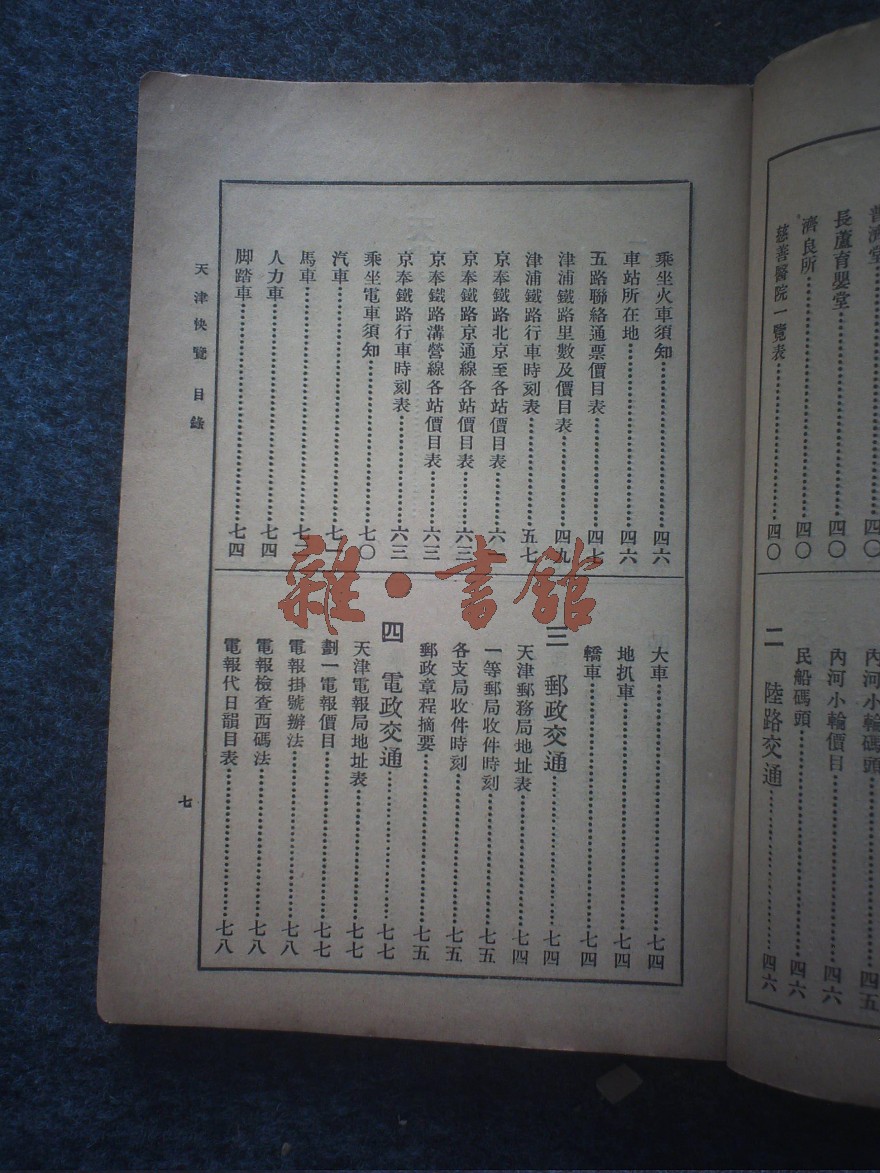 普濟堂
長蘆育嬰堂……四〇
濟良所……四〇
慈善醫院一覽表……四〇
內河小輪碼頭……四五
內河小輪價目……四六
民船碼頭……四六
二 陸路交通……四六
乘坐火車須知……四六
車站所在地……四六
五路聯絡通票價目表……四七
津浦鐵路里數及價目表……四九
津浦鐵路行車時刻表……五七
京奉鐵路北京至各站價目表……六一
京奉鐵路京通線各站價目表……六三
京奉鐵路溝營線各站價目表……六三
京奉鐵路行車時刻表……六三
乘坐電車須知……七〇
汽車……七一
馬車……七三
人力車……七四
腳踏車……七四
大車……七四
地扒車……七四
轎車……七四
三 郵政交通……七四
天津郵務局地址表……七四
一等郵局收件時刻……七五
各支局收件時刻……七五
郵政章程摘要……七五
四 電政交通……七七
天津電報局地址表……七七
劃一電報價目……七七
電報掛號辦法……七八
電報檢查西碼法……七八
電報代日韻目表……七八
天津快覽 目錄
七
雜·書館